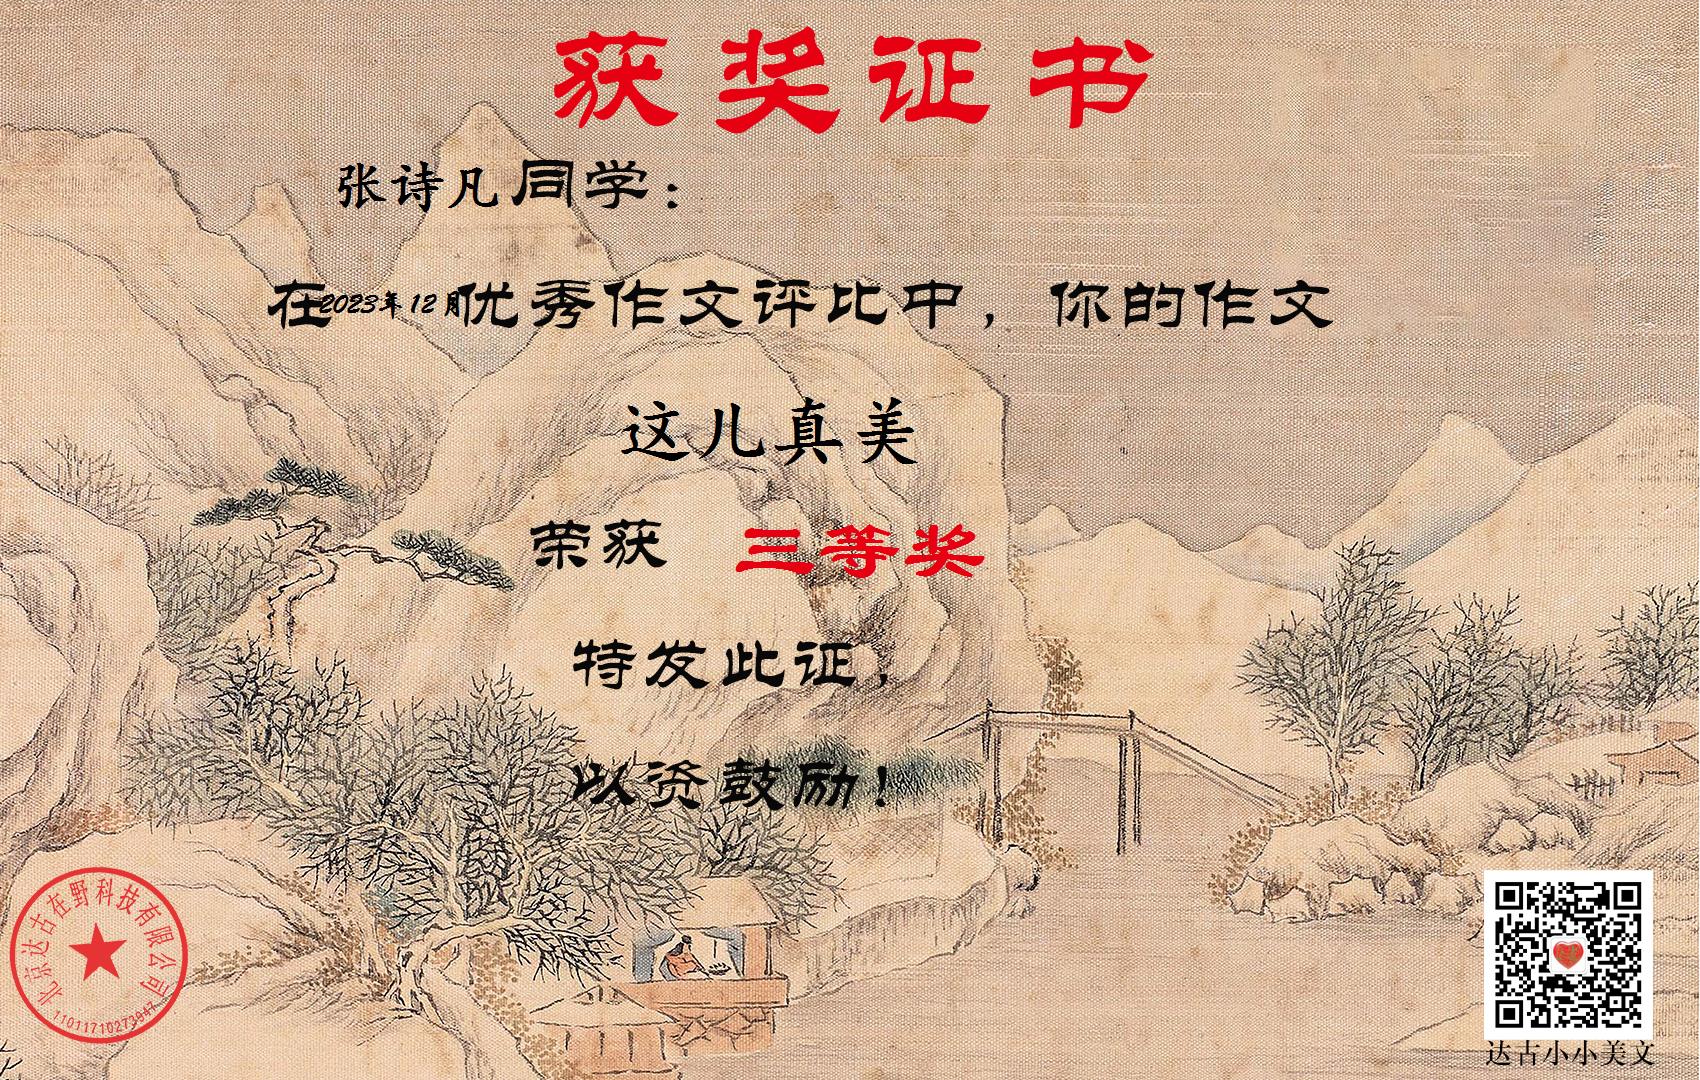 获奖证书
张诗凡同学：
在2023年12月优秀作文评比中，你的作文
这儿真美
荣获 三等奖
特发此证，
以资鼓励！
北京达古在野科技有限公司
11011710273947
达古小小美文